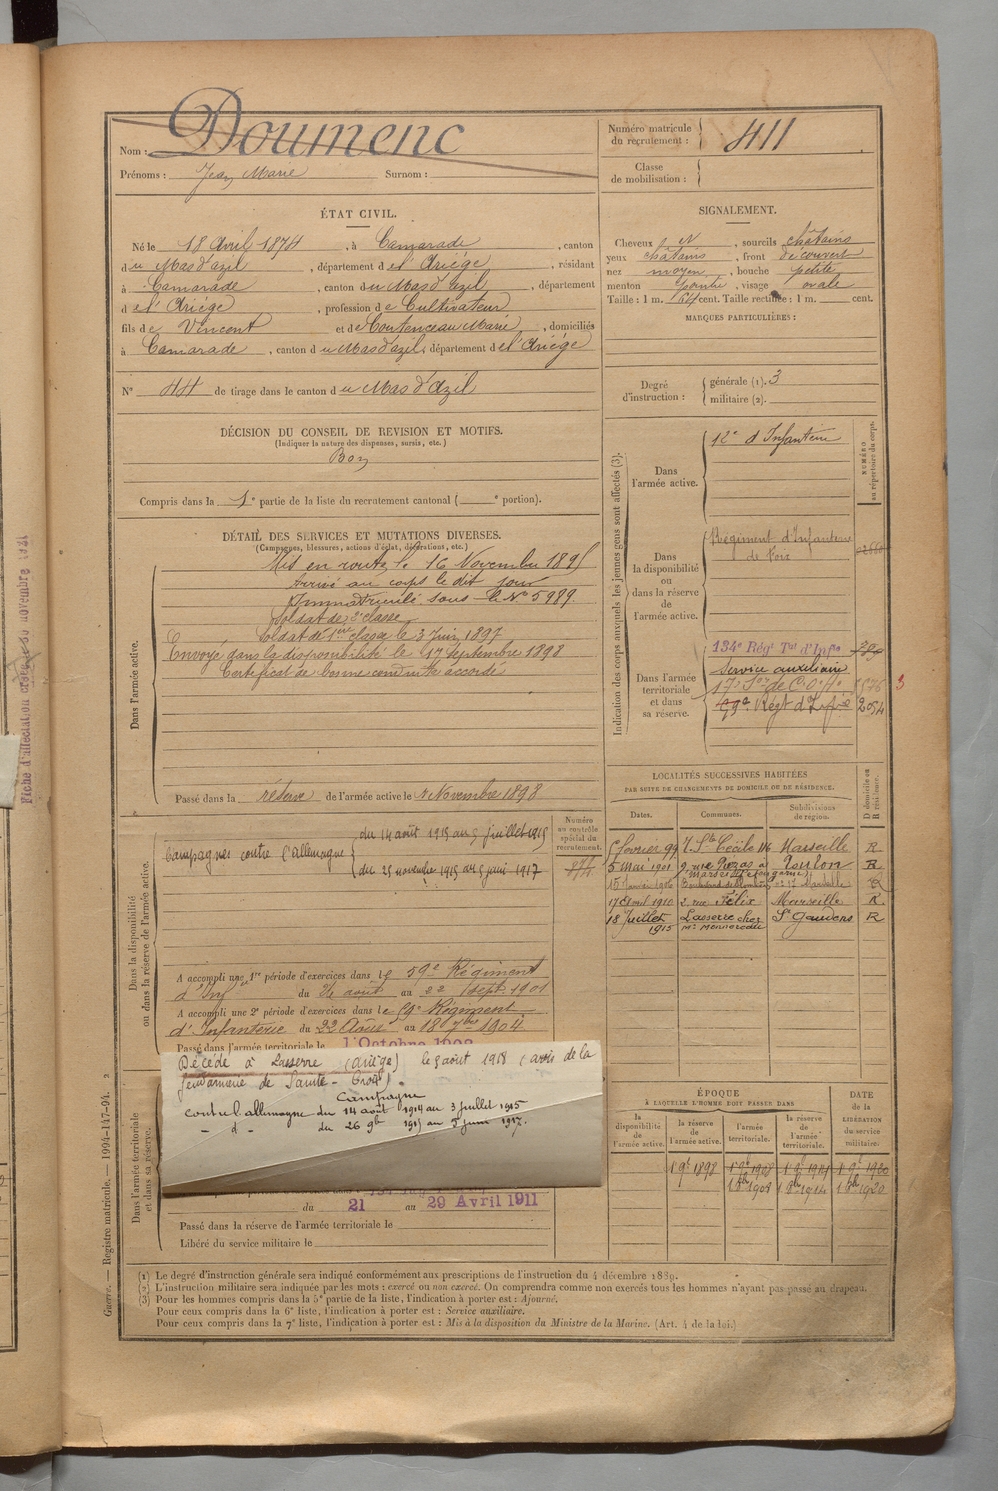 Nom : Doumenc
Prénoms : Jean Marie Surnom :
Numéro matricule du recrutement : 411
Classe de mobilisation :
ÉTAT CIVIL.
Né le 18 Avril 1874, à Camarade, canton
du Mas d'azil, département de l'Ariége, résidant
à Camarade, canton du Mas d'azil, département
de l'Ariége, profession de Cultivateur
fils de Vincent et de Contenceau Marie, domiciliés
à Camarade, canton du Mas d'azil, département de l'Ariége
N° 44 de tirage dans le canton du Mas d'Azil
DÉCISION DU CONSEIL DE REVISION ET MOTIFS.
(Indiquer la nature des dispenses, sursis, etc.)
Bon
Compris dans la 1e partie de la liste du recrutement cantonal ( e portion).
SIGNALEMENT.
Cheveux et, sourcils châtains
yeux châtains, front découvert
nez moyen, bouche petite
menton pointu, visage ovale
Taille : 1 m. 64 cent. Taille rectifiée : 1 m. cent.
MARQUES PARTICULIÈRES :
Degré d'instruction : générale (1). 3
militaire (2).
DÉTAIL DES SERVICES ET MUTATIONS DIVERSES.
(Campagnes, blessures, actions d'éclat, décorations, etc.)
Dans l'armée active.
Mis en route le 16 Novembre 1895
Arrivé au corps le dit jour
Immatriculé sous le N° 5989.
Soldat de 2e classe
Soldat de 1ere classe le 3 Juin 1897
Envoyé dans la disponibilité le 17 Septembre 1898
Certificat de bonne conduite accordé
Passé dans la réserve de l'armée active le 1 Novembre 1898
Indication des corps auxquels les jeunes gens sont affectés (3).
NUMÉRO au répertoire du corps.
Dans l'armée active.
12e d'Infanterie
Dans la disponibilité ou dans la réserve de l'armée active.
Régiment d'Infanterie
de Foix
Dans l'armée territoriale et dans sa réserve.
134e Régt Tal d'Infie
Service auxiliaire
17e Son de C.O.
Régt d'Infie 2054
3
LOCALITÉS SUCCESSIVES HABITÉES
PAR SUITE DE CHANGEMENTS DE DOMICILE OU DE RÉSIDENCE.
Dates. Communes. Subdivisions de région. D domicile ou R résidence.
5 février 99 r. Ste Cécile 116 Marseille R
5 mai 1901 9 rue Toulon R
R
17 avril 1910 2. rue Félix Marseille R
18 Juillet 1915 Lasserre chez St Gaudens R
Dans la disponibilité ou dans la réserve de l'armée active.
Numéro au contrôle spécial du recrutement.
874
Campagnes contre l'allemagne
du 14 août 1915 au 5 juillet 1915
du 25 novembre 1915 au 5 juin 1917
A accompli une 1re période d'exercices dans le 59e Régiment
d'Infie du 26 août au 22 sept 1901
A accompli une 2e période d'exercices dans le Régiment
d'Infanterie du 22 Août au 18 7bre 1904.
Passé dans l'armée territoriale le 1 Octobre 1908
Décédé à Lasserre (Ariège) le 5 août 1918 (avis de la
gendarmerie de Sainte-Croix).
Campagne
contre l'allemagne du 14 août 1914 au 3 juillet 1915
- d - du 26 9b 1915 au 5 juin 1917.
Dans l'armée territoriale et dans sa réserve.
du 21 au 29 Avril 1911
Passé dans la réserve de l'armée territoriale le
Libéré du service militaire le
ÉPOQUE
À LAQUELLE L'HOMME DOIT PASSER DANS
la disponibilité de l'armée active. la réserve de l'armée active. l'armée territoriale. la réserve de l'armée territoriale. DATE de la LIBÉRATION du service militaire.
1 9e 1898 1 9e 1908 1 9e 1914 1 9e 1920
1 8bre 1908 1 8bre 1914 1 8bre 1920
(1) Le degré d'instruction générale sera indiqué conformément aux prescriptions de l'instruction du 4 décembre 1889.
(2) L'instruction militaire sera indiquée par les mots : exercé ou non exercé. On comprendra comme non exercés tous les hommes n'ayant pas passé au drapeau.
(3) Pour les hommes compris dans la 5e partie de la liste, l'indication à porter est : Ajourné.
Pour ceux compris dans la 6e liste, l'indication à porter est : Service auxiliaire.
Pour ceux compris dans la 7e liste, l'indication à porter est : Mis à la disposition du Ministre de la Marine. (Art. 4 de la loi.)
Guerre. — Registre matricule. — 1994-147-94. 2
Fiche d'affectation novembre 1921